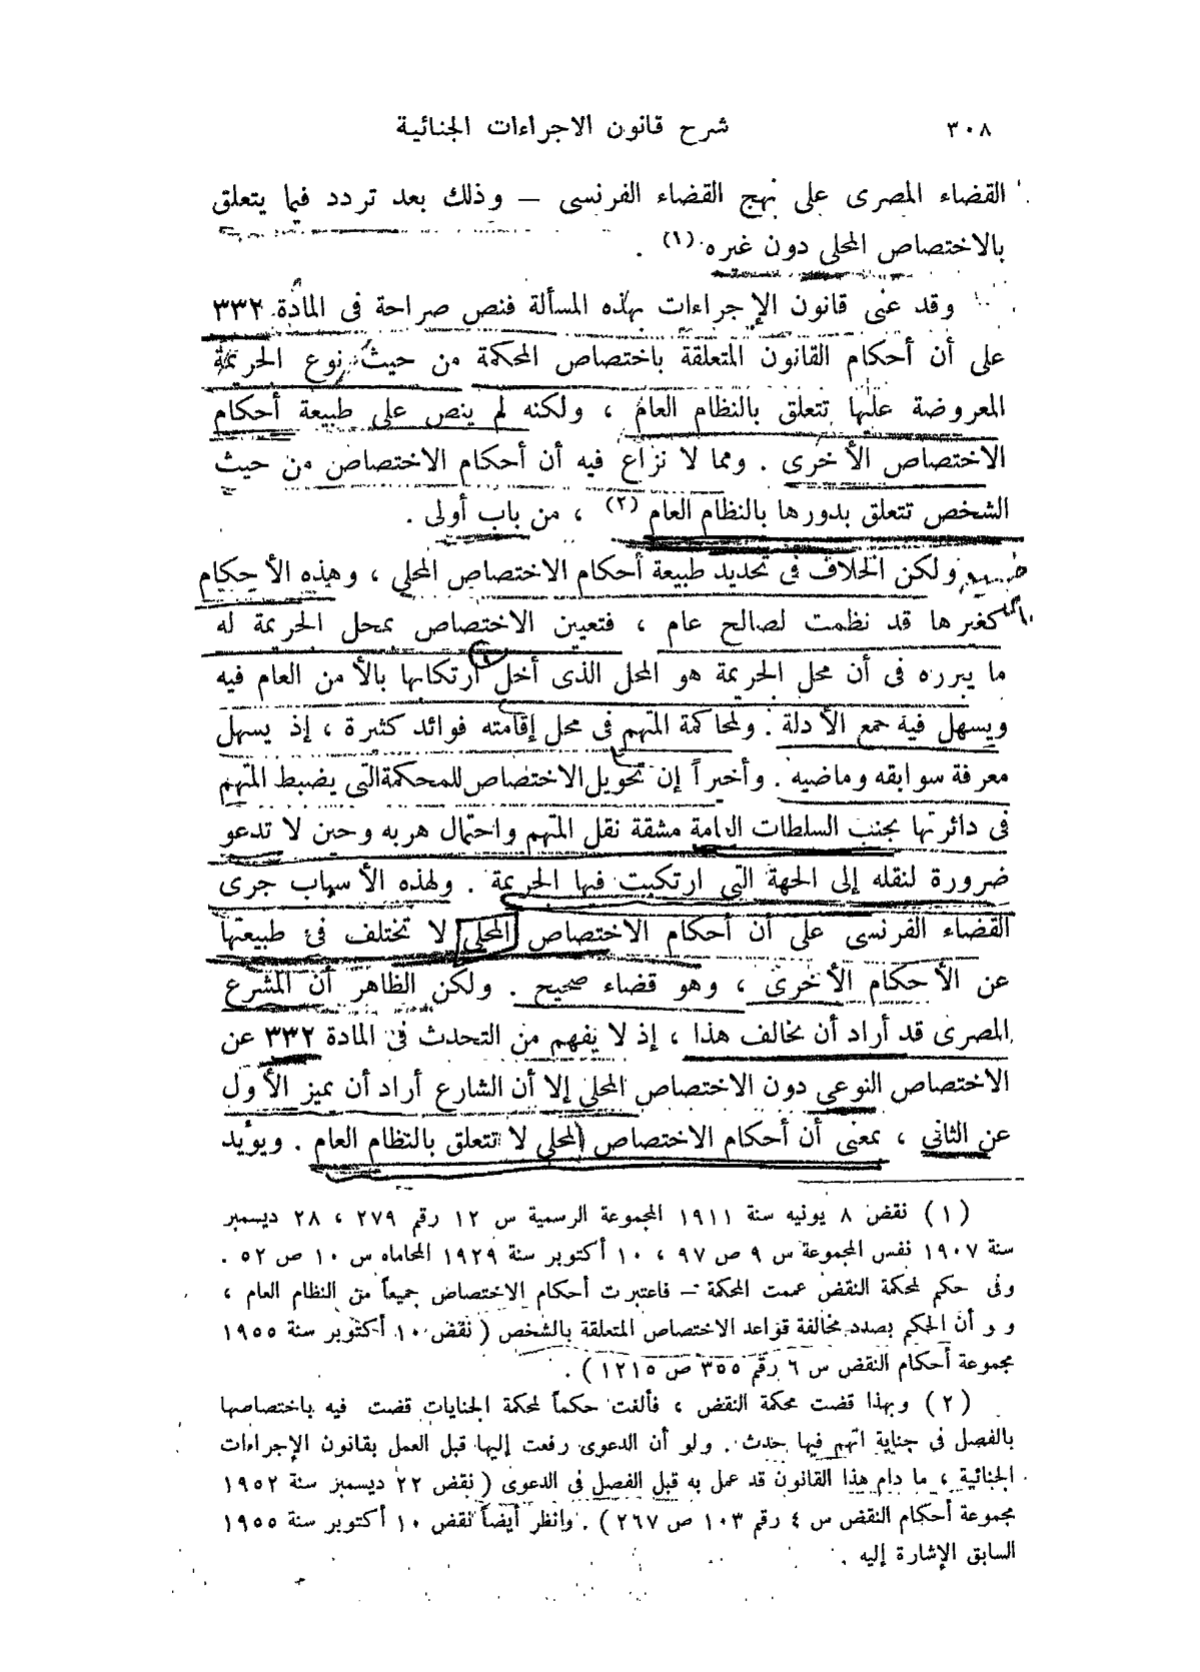 ٣٠٨
شرح قانون الاجراءات الجنائية
القضاء المصرى على نهج القضاء الفرنسى – وذلك بعد تردد فيما يتعلق
بالاختصاص المحلى دون غيره (١) .
وقد عنى قانون الإجراءات بهذه المسألة فنص صراحة فى المادة ٣٣٢
على أن أحكام القانون المتعلقة باختصاص المحكمة من حيث نوع الجريمة
المعروضة عليها تتعلق بالنظام العام ، ولكنه لم ينص على طبيعة أحكام
الاختصاص الأخرى . ومما لا نزاع فيه أن أحكام الاختصاص من حيث
الشخص تتعلق بدورها بالنظام العام (٢) ، من باب أولى .
ولكن الخلاف فى تحديد طبيعة أحكام الاختصاص المحلى ، وهذه الأحكام
كغيرها قد نظمت لصالح عام ، فتعيين الاختصاص بمحل الجريمة له
ما يبرره فى أن محل الجريمة هو المحل الذى أخل ارتكابها بالأمن العام فيه
ويسهل فيه جمع الأدلة . ولمحاكمة المتهم فى محل إقامته فوائد كثيرة ، إذ يسهل
معرفة سوابقه وماضيه . وأخيراً إن تخويل الاختصاص للمحكمة التى يضبط المتهم
فى دائرتها يجنب السلطات العامة مشقة نقل المتهم واحتمال هربه وحين لا تدعو
ضرورة لنقله إلى الجهة التى ارتكبت فيها الجريمة . ولهذه الأسباب جرى
القضاء الفرنسى على أن أحكام الاختصاص المحلى لا تختلف فى طبيعتها
عن الأحكام الأخرى ، وهو قضاء صحيح . ولكن الظاهر أن المشرع
المصرى قد أراد أن يخالف هذا ، إذ لا يفهم من التحدث فى المادة ٣٣٢ عن
الاختصاص النوعى دون الاختصاص المحلى إلا أن الشارع أراد أن يميز الأول
عن الثانى ، بمعنى أن أحكام الاختصاص المحلى لا تتعلق بالنظام العام . ويؤيد
(١) نقض ٨ يونيه سنة ١٩١١ المجموعة الرسمية س ١٢ رقم ٢٧٩ ، ٢٨ ديسمبر
سنة ١٩٠٧ نفس المجموعة س ٩ ص ٩٧ ، ١٠ أكتوبر سنة ١٩٢٩ المحاماه س ١٠ ص ٥٢ .
وفى حكم لمحكمة النقض عممت المحكمة – فاعتبرت أحكام الاختصاص جميعاً من النظام العام ،
و و أن الحكم بصدد مخالفة قواعد الاختصاص المتعلقة بالشخص ( نقض ١٠ أكتوبر سنة ١٩٥٥
مجموعة أحكام النقض س ٦ رقم ٣٥٥ ص ١٢١٥ ) .
(٢) وبهذا قضت محكمة النقض ، فألغت حكماً لمحكمة الجنايات قضت فيه باختصاصها
بالفصل فى جناية اتهم فيها حدث . ولو أن الدعوى رفعت إليها قبل العمل بقانون الإجراءات
الجنائية ، ما دام هذا القانون قد عمل به قبل الفصل فى الدعوى ( نقض ٢٢ ديسمبر سنة ١٩٥٢
مجموعة أحكام النقض س ٤ رقم ١٠٣ ص ٢٦٧ ) . وانظر أيضاً نقض ١٠ أكتوبر سنة ١٩٥٥
السابق الإشارة إليه .